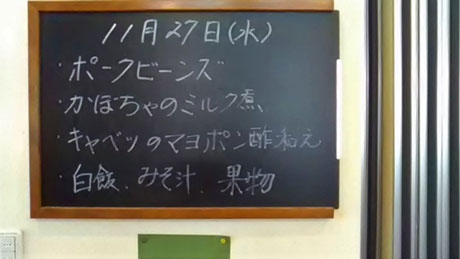 11月27日(水)
・ポークビーンズ
・かぼちゃのミルク煮
・キャベツのマヨポン酢和え
・白飯、みそ汁、果物